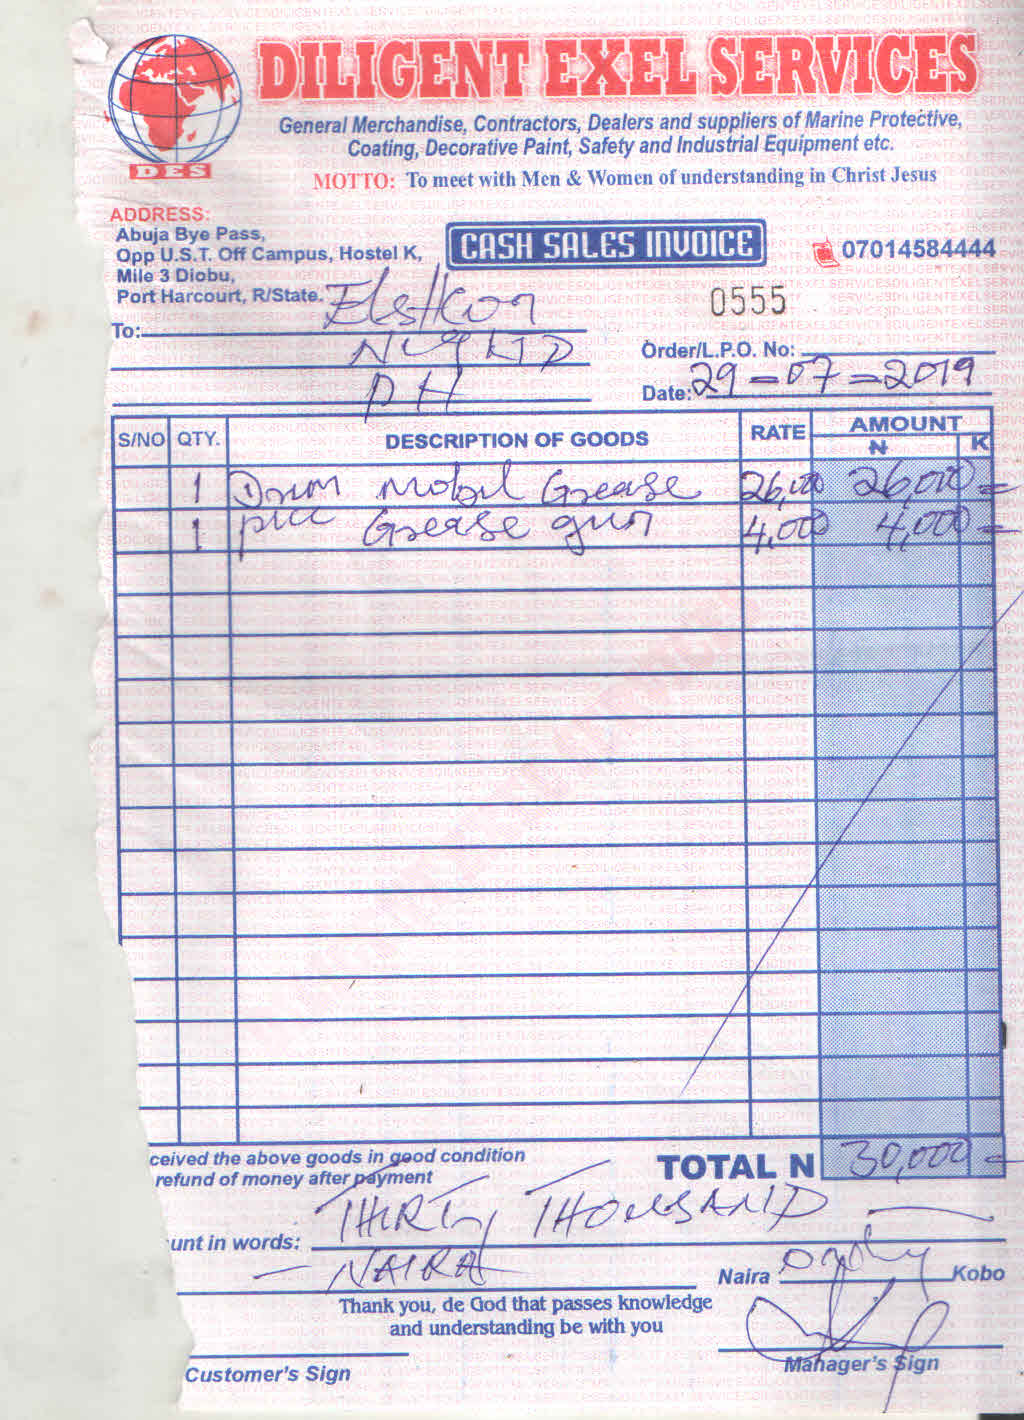 DILIGENT EXEL SERVICES
General Merchandise, Contractors, Dealers and suppliers of Marine Protective,
Coating, Decorative Paint, Safety and Industrial Equipment etc.
MOTTO: To meet with Men & Women of understanding in Christ Jesus
DES
ADDRESS:
Abuja Bye Pass,
Opp U.S.T. Off Campus, Hostel K,
Mile 3 Diobu,
Port Harcourt, R/State.
CASH SALES INVOICE
07014584444
0555
To:
NIG LTD
PH
Order/L.P.O. No:
Date: 29-07-2019
S/NO QTY. DESCRIPTION OF GOODS RATE AMOUNT
N K
1 Drum Mobil Grease 26,000 26,000 =
1 pcc Grease gun 4,000 4,000 =
TOTAL N 30,000 =
ceived the above goods in good condition
refund of money after payment
unt in words: THIRTY THOUSAND
NAIRA
Naira Kobo
Thank you, de God that passes knowledge
and understanding be with you
Customer's Sign
Manager's Sign